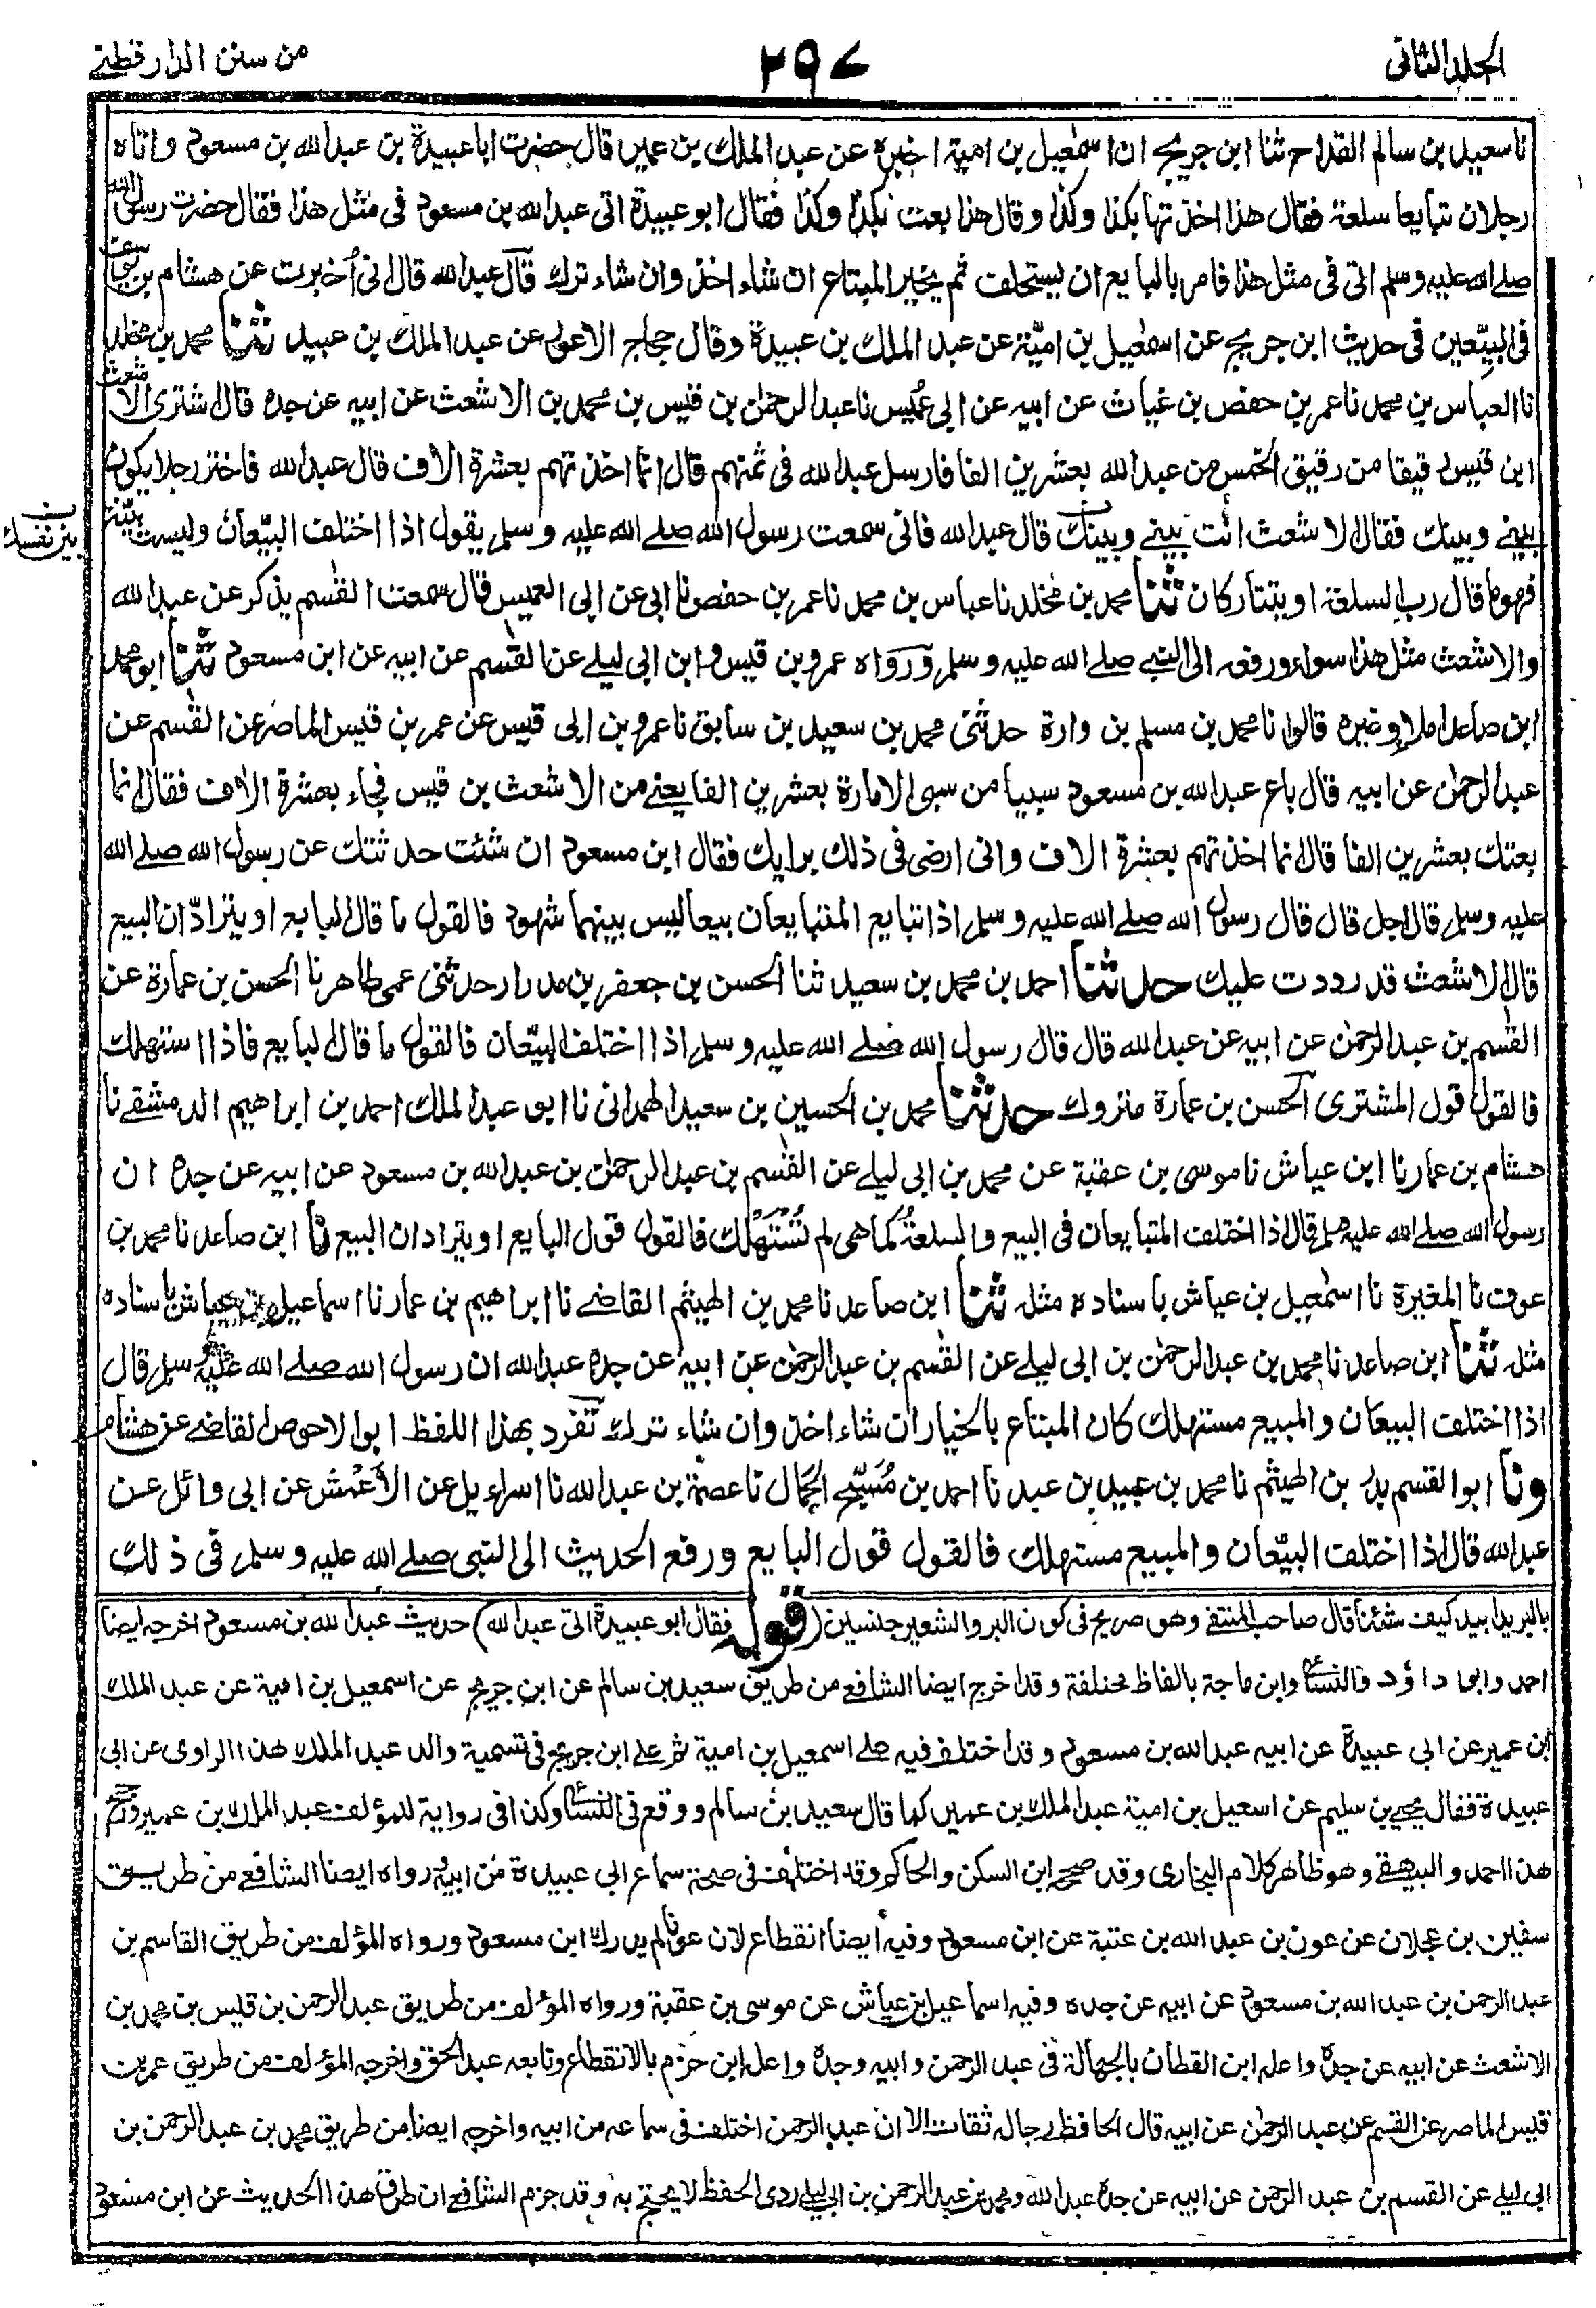 الجلد الثانی
٢٩٧
من سنن الدارقطنے
نا سعید بن سالم القداح ثنا ابن جریج ان اسمٰعیل بن امیة اخبره عن عبد الملك بن عمیر قال حضرت ابا عبیدة بن عبد الله بن مسعود واتاه
رجلان تبایعا سلعة فقال هذا اخذتها بكذا وكذا وقال هذا بعت بكذا وكذا فقال ابو عبیدة اتی عبد الله بن مسعود فی مثل هذا فقال حضرت رسول الله
صلے الله علیه وسلم اتی فی مثل هذا فامر بالبایع ان یستحلف ثم یخیر المبتاع ان شاء اخذ وان شاء ترك قال عبد الله قال ابی اُخبرت عن هشام بن یوسف
فی البیّعین فی حدیث ابن جریج عن اسمٰعیل بن امیّة عن عبد الملك بن عبیدة وقال حجاج الاعور عن عبد الملك بن عبید ثنا محمد بن مخلد
نا العباس بن محمد نا عمر بن حفص بن غیاث عن ابیه عن ابی عُمَیس نا عبد الرحمٰن بن قیس بن محمد بن الاشعث عن ابیه عن جده قال اشتری الاشعث
ابن قیس رقیقا من رقیق الخمس من عبد الله بعشرین الفا فارسل عبد الله فی ثمنهم قال انما اخذتهم بعشرة الاف قال عبد الله فاختر رجلا یكون
بینے وبینك فقال الاشعث انت بینے وبینك قال عبد الله فانی سمعت رسول الله صلے الله علیه وسلم یقول اذا اختلف البیّعان ولیست بینهما بیّنة
بین نفسك
فهو ما قال رب السلعة او یتتاركان ثنا محمد بن مخلد نا عباس بن محمد نا عمر بن حفص نا ابی عن ابی العمیس قال سمعت القٰسم یذكر عن عبد الله
والاشعث مثل هذا سواء ورفعه الی النبے صلے الله علیه وسلم ورواه عمرو بن قیس وابن ابی لیلے عن القٰسم عن ابیه عن ابن مسعود ثنا ابو محمد
ابن صاعد املاء وغیره قالوا نا محمد بن مسلم بن وارة حدثنی محمد بن سعید بن سابق نا عمرو بن ابی قیس عن عمر بن قیس الماصر عن القٰسم عن
عبد الرحمٰن عن ابیه قال باع عبد الله بن مسعود سبیا من سبی الامارة بعشرین الفا یعنے من الاشعث بن قیس فجاء بعشرة الاف فقال انما
بعتك بعشرین الفا قال انما اخذتهم بعشرة الاف وانی ارضی فی ذلك برایك فقال ابن مسعود ان شئت حدثتك عن رسول الله صلے الله
علیه وسلم قال اجل قال قال رسول الله صلے الله علیه وسلم اذا تبایع المتبایعان بیعا لیس بینهما شهود فالقول ما قال البایع او یترادّان البیع
قال الاشعث قد رددت علیك حدثنا احمد بن محمد بن سعید ثنا الحسن بن جعفر بن مدرار حدثنی عمی طاهر نا الحسن بن عمارة عن
القٰسم بن عبد الرحمٰن عن ابیه عن عبد الله قال قال رسول الله صلے الله علیه وسلم اذا اختلف البیّعان فالقول ما قال البایع فاذا استهلك
فالقول قول المشتری الحسن بن عمارة متروك حدثنا محمد بن الحسین بن سعید الهمدانی نا ابو عبد الملك احمد بن ابراهیم الدمشقے نا
هشام بن عمار نا ابن عیاش نا موسی بن عقبة عن محمد بن ابی لیلے عن القٰسم بن عبد الرحمٰن بن عبد الله بن مسعود عن ابیه عن جده ان
رسول الله صلے الله علیه وسلم قال اذا اختلف المتبایعان فی البیع والسلعةُ كما هی لم تُسْتَهْلَك فالقول قول البایع او یترادان البیع نا ابن صاعد نا محمد بن
عوف نا المغیرة نا اسمٰعیل بن عیاش باسناده مثله ثنا ابن صاعد نا محمد بن الهیثم القاضے نا ابراهیم بن عمار نا اسماعیل بن عیاش باسناده
مثله ثنا ابن صاعد نا محمد بن عبد الرحمٰن بن ابی لیلے عن القٰسم بن عبد الرحمٰن عن ابیه عن جده عبد الله ان رسول الله صلے الله علیه وسلم قال
اذا اختلف البیعان والمبیع مستهلك كان المبتاع بالخیار ان شاء اخذ وان شاء ترك تَفَرد بهذا اللفظ ابو الاحوص القاضے عن هشام
ونا ابو القسم بدر بن الهیثم نا محمد بن عبید بن عبد نا احمد بن مُسَبِّح الجمال نا عصمة بن عبد الله نا اسراءیل عن الاَعْمش عن ابی وائل عن
عبد الله قال اذا اختلف البیّعان والمبیع مستهلك فالقول قول البایع ورفع الحدیث الی النبی صلے الله علیه وسلم فی ذلك
بالبر یدا بید كیف شئنا قال صاحب المنتقے وهو صریح فی كون البر والشعیر جنسین (قوله فقال ابو عبیدة اتی عبد الله) حدیث عبد الله بن مسعود اخرجه ایضا
احمد وابو داؤد والنسائی وابن ماجة بالفاظ مختلفة وقد اخرج ایضا الشافعے من طریق سعید بن سالم عن ابن جریج عن اسمعیل بن امیة عن عبد الملك
ابن عمیر عن ابی عبیدة عن ابیه عبد الله بن مسعود وقد اختلف فیه علے اسمعیل بن امیة ثم علے ابن جریج فی تسمیة والد عبد الملك هذا الراوی عن ابی
عبیدة فقال یحیے بن سلیم عن اسمعیل بن امیة عبد الملك بن عمیر كما قال سعید بن سالم ووقع فی النسائی وكذا فی روایة للمؤلف عبد الملك بن عمیر ورجح
هذا احمد والبیهقے وهو ظاهر كلام البخاری وقد صححه ابن السكن والحاكم وقد اختلف فی صحة سماع ابی عبیدة من ابیه ورواه ایضا الشافعے من طریق
سفین بن عجلان عن عون بن عبد الله بن عتبة عن ابن مسعود وفیه ایضا انقطاع لان عونا لم یدرك ابن مسعود ورواه المؤلف من طریق القاسم بن
عبد الرحمن بن عبد الله بن مسعود عن ابیه عن جده وفیه اسماعیل بن عیاش عن موسی بن عقبة ورواه المؤلف من طریق عبد الرحمن بن قلیس بن محمد بن
الاشعث عن ابیه عن جده واعله ابن القطان بالجهالة فی عبد الرحمن وابیه وجده واعله ابن حزم بالانقطاع وتابعه عبد الحق واخرجه المؤلف من طریق عمر بن
قیس الماصر عن القسم عن عبد الرحمٰن عن ابیه قال الحافظ رجاله ثقات الا ان عبد الرحمن اختلف فی سماعه من ابیه واخرجه ایضا من طریق محمد بن عبد الرحمن بن
ابی لیلے عن القسم بن عبد الرحمن عن ابیه عن جده عبد الله ومحمد بن عبد الرحمن بن ابی لیلے ردی الحفظ لا یحتج به وقد جزم الشافعے ان طرق هذا الحدیث عن ابن مسعود